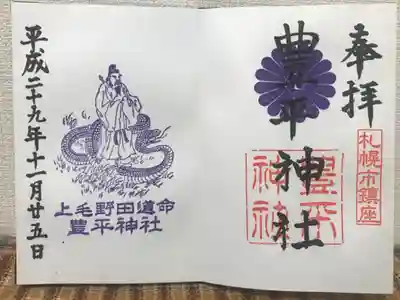 奉拝
札幌市鎮座
豊平神社
豊平神社
上毛野田道命
豊平神社
平成二十九年十一月廿五日